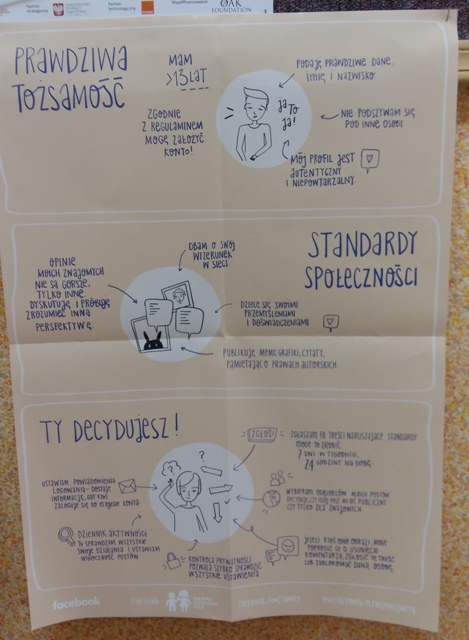 OAK
FOUNDATION
PRAWDZIWA
TOŻSAMOŚĆ
MAM
>13 LAT
ZGODNIE
Z REGULAMINEM
MOGĘ ZAŁOŻYĆ
KONTO!
JA TO
JA!
PODAJĘ PRAWDZIWE DANE,
IMIĘ I NAZWISKO
NIE PODSZYWAM SIĘ
POD INNE OSOBY
MÓJ PROFIL JEST
AUTENTYCZNY
I NIEPOWTARZALNY
STANDARDY
SPOŁECZNOŚCI
OPINIE
MOICH ZNAJOMYCH
NIE SĄ GORSZE,
TYLKO INNE.
DYSKUTUJĘ I PRÓBUJĘ
ZROZUMIEĆ INNĄ
PERSPEKTYWĘ.
DBAM O SWÓJ
WIZERUNEK
W SIECI.
DZIELĘ SIĘ SWOIMI
PRZEMYŚLENIAMI
I DOŚWIADCZENIAMI
PUBLIKUJĘ MEMY, GRAFIKI, CYTATY,
PAMIĘTAJĄC O PRAWACH AUTORSKICH
TY DECYDUJESZ!
ZGŁOŚ!
ZGŁASZAM FB TREŚCI NARUSZAJĄCE STANDARDY
MOGĘ TO ZROBIĆ
7 DNI W TYGODNIU,
24 GODZINY NA DOBĘ
USTAWIAM POWIADOMIENIA
LOGOWANIA - DOSTAJĘ
INFORMACJĘ, GDY KTOŚ
ZALOGUJE SIĘ DO MOJEGO KONTA
WYBIERAM ODBIORCÓW MOICH POSTÓW
CZY TYLKO DLA ZNAJOMYCH
DZIENNIK AKTYWNOŚCI
TU SPRAWDZAM WSZYSTKIE
SWOJE DZIAŁANIA I USTAWIAM
WIDOCZNOŚĆ POSTÓW
KONTROLA PRYWATNOŚCI
POZWALA SZYBKO SPRAWDZIĆ
WSZYSTKIE USTAWIENIA
JEŻELI KTOŚ MNIE OBRAZI, MOGĘ
POPROSIĆ GO O USUNIĘCIE
KOMENTARZA, ZGŁOSIĆ TĘ TREŚĆ
LUB ZABLOKOWAĆ DANĄ OSOBĘ
facebook
PARTNER